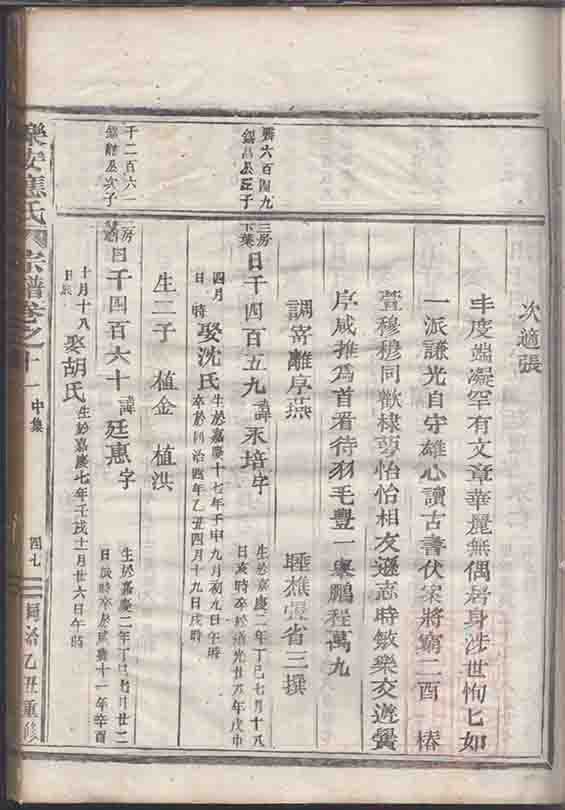 次適張
丰度端凝罕有文章華麗無偶居身涉世恂匕如
一派謙光自守雄心讀古書伏案將窮二酉 椿
萱穆穆同歡棣萼怡怡相友遜志時敏樂交遊黌
序咸推為首看待羽毛豐一舉鵬程萬九
調寄離亭燕 省三撰
六百四九
三房
日千四百五九 諱永培字
生於嘉慶二年丁巳七月十八
日亥時卒於道光廿八年戊申
四月 日 時
娶沈氏
生於嘉慶十七年壬申九月初九日午時
卒於同治四年乙丑四月十九日戌時
生二子 植金 植洪
千二百六一
次子
房
日千四百六十 諱廷惠字
生於嘉慶二年丁巳 月廿二
日 時卒於咸豐十一年辛酉
十月十八
日辰
娶胡氏
生於嘉慶七年壬戌十一月廿六日午時
樂安應氏宗譜卷之十一 中集
四七
同治乙丑重修